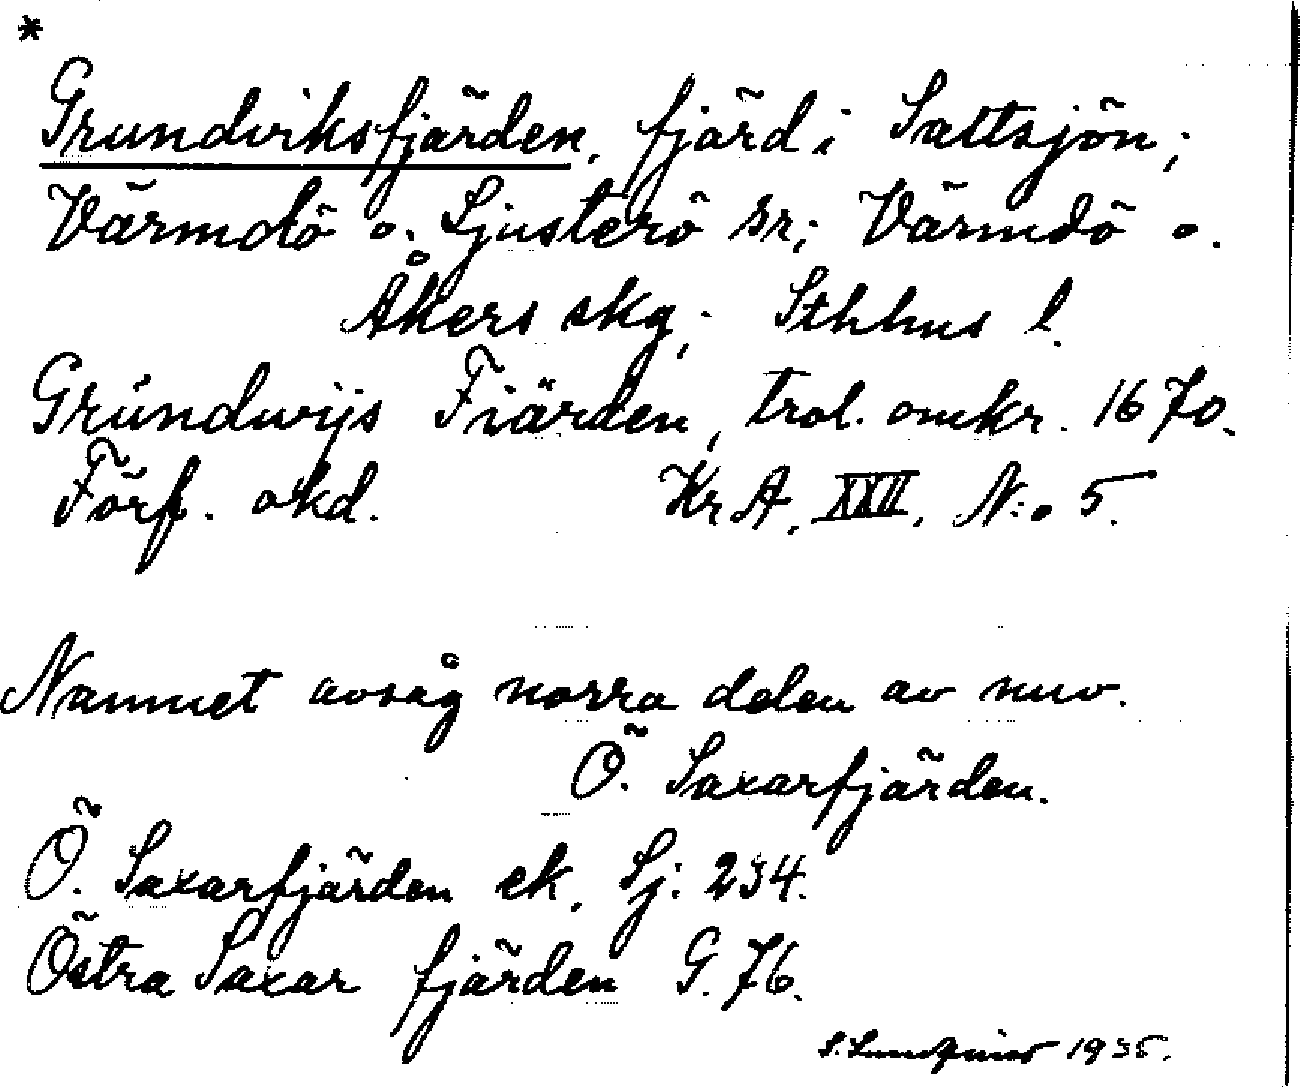 *
Grundviksfjärden, fjärd i Saltsjön;
Värmdö o. Ljusterö sr; Värmdö o.
Åkers skg; Sthlms l.
Grúndwijs Fiärden, trol. omkr. 1670.
Förf. okd. Kr A. XXII. N:o 5.
Namnet avsåg norra delen av nuv.
Ö. Saxarfjärden.
Ö. Saxarfjärden ek. Sj: 234.
Östra Saxar fjärden G. 76.
S. Lundqvist 1935.